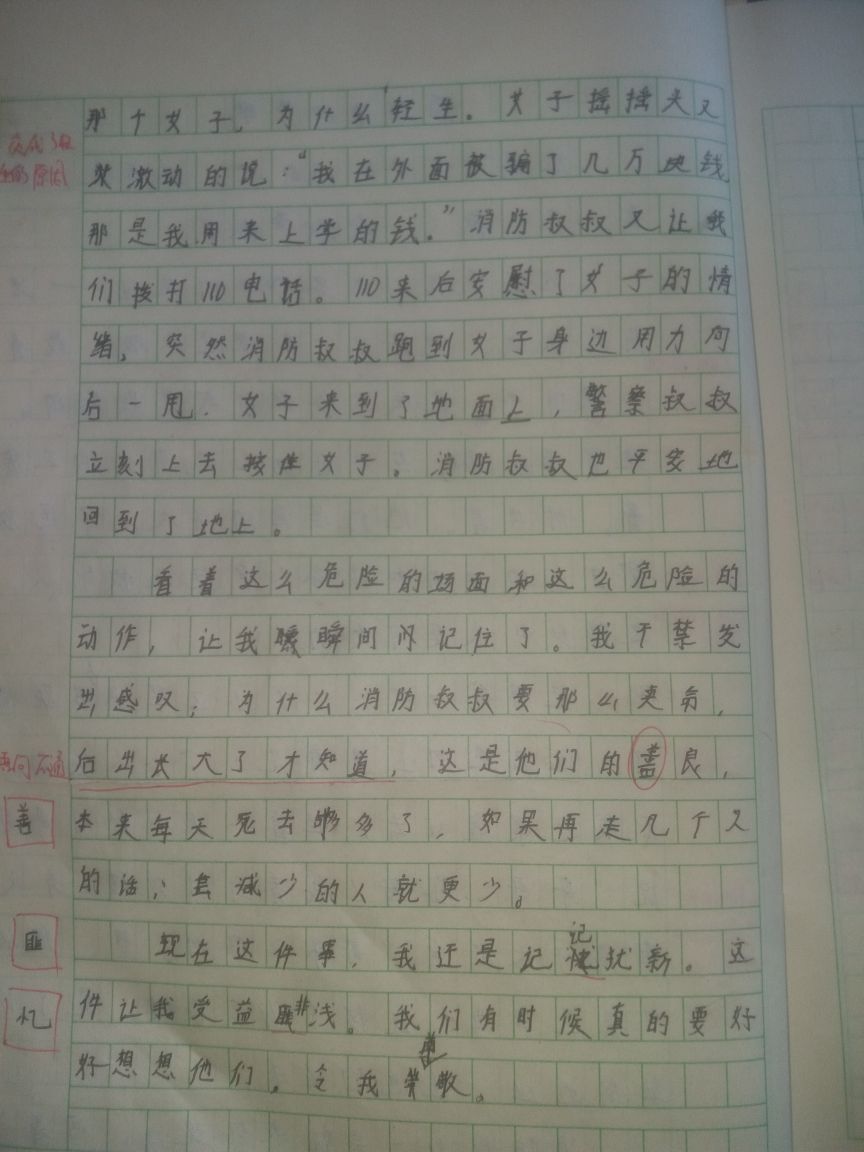 那个女子,为什么轻生。女子摇摇头又
激动的说:“我在外面被骗了几万块钱
原因
那是我用来上学的钱.”消防叔叔又让我
们拨打110电话。110来后安慰了女子的情
绪,突然消防叔叔跑到女子身边用力向
后一甩.女子来到了地面上,警察叔叔
立刻上去按住女子。消防叔叔也平安地
回到了地上。
看着这么危险的场面和这么危险的
动作,让我瞬间闪记住了。我不禁发
出感叹:为什么消防叔叔要那么卖命,
后出长大了才知道,这是他们的善良,
善
本来每天死去够多了,如果再走几个人
的话;会减少的人就更少。
现在这件事,我还是记忆犹新。这
匪
件让我受益匪浅。我们有时候真的要好
忆
好想想他们。令我尊敬。